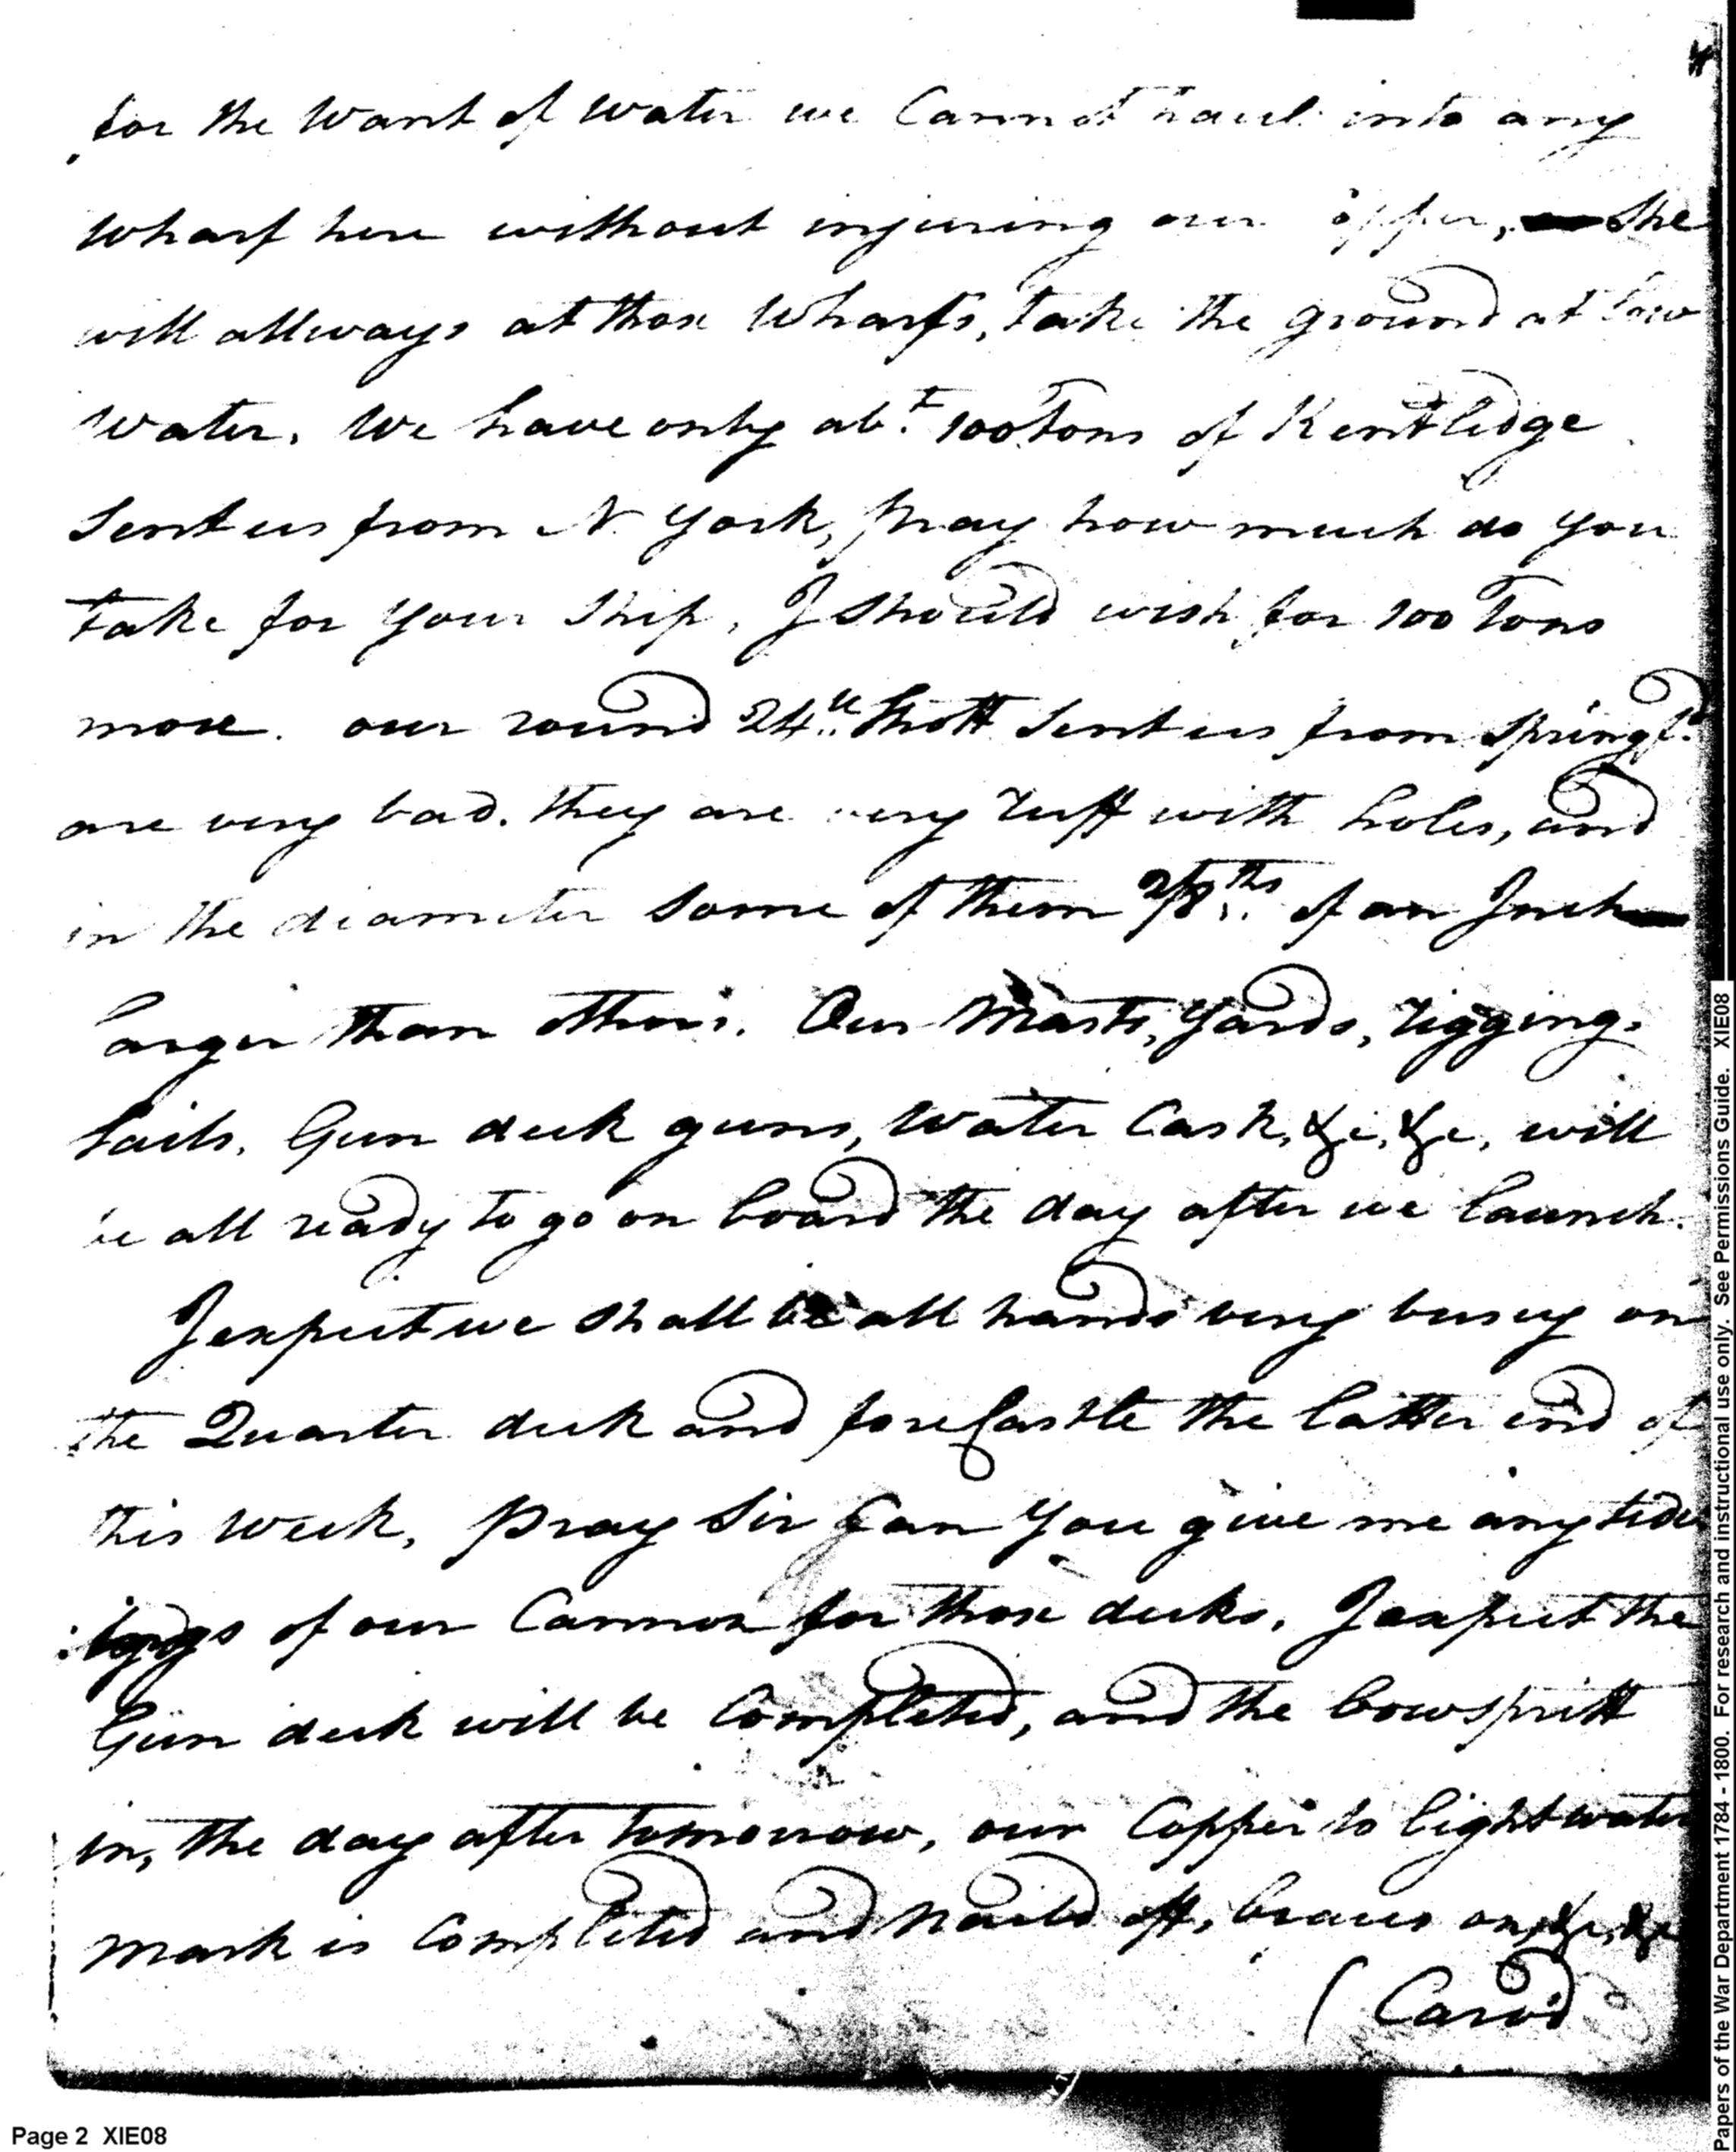 for the want of water we Cannot haul into any
wharf here without injuring our Copper, she
will allways at those Wharfs, take the ground at low
water. We have only abt. 100 Tons of Kentledge
Sent us from N York, pray how much do you
take for your Ship, I should wish for 100 Tons
more. our round 24 lb. Shott Sent us from Springfd.
are very bad. they are very ruff with holes, and
in the diameter Some of them 2/8ths. of an Inch
larger than others. Our Masts, Yards, rigging,
Sails, Gun deck guns, Water Cask, &c, &c, will
be all ready to go on board the day after we launch.
I expect we shall be all hands very busey on
the Quarter deck and foreCastle the latter end of
this week, pray Sir Can You give me any tide
:ings of our Cannon for those decks, I expect the
Gun deck will be Completed, and the bowspritt
in, the day after tomorrow, our Copper to light water
mark is Completed and Naild off, braces on, &c, &c
(Carvd
Page 2 XIE08
Papers of the War Department 1784 - 1800. For research and instructional use only. See Permissions Guide. XIE08